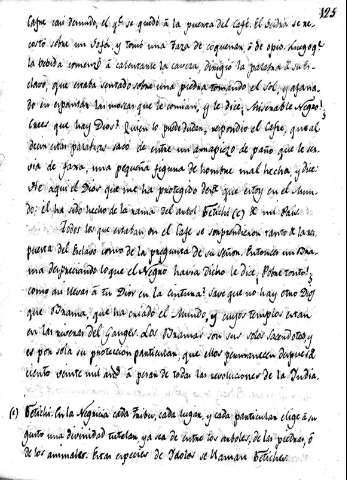 125
Cafre casi desnudo, el q.e se quedó a la puerta del Café. El Indio se re-
costó sobre un Sofá, y tomó una taza de coquenar, ó de opio. Luego q.e
la bebida comenzó a calentarle la cavesa, dirigió la palabra á su es-
clavo, que estaba sentado sobre una piedra tomando el sol, y afana-
do en espantar las moscas que le comian, y le dice: Miserable Negro!
Crees que hay Dios? Quien lo puede dudar, respondió el Cafre, que al
decir estas palabras sacó de entre un amapiezo de paño que le ser-
via de faxa, una pequeña figura de hombre mal hecha, y dice:
He aqui el Dios que me ha protegido desde que estoy en el Mun-
do: el ha sido hecho de la rama del arbol Fetichi (c) de mi Pais.
Todos los que estaban en el Café se sorprendieron tanto de la res-
puesta del Esclavo como de la pregunta de su Señor. Entonces un Bra-
ma despreciando lo que el Negro havia dicho le dice, Pobre tonto!
como asi llevas á tu Dior en la cintura? Save que no hay otro Dios
que Brama, que ha criado el Mundo, y cuyos templos estan
en las riveras del Ganges. Los Bramas son sus solos Sacerdotes, y
es por sola su proteccion particular, que ellos permanecen despues de
ciento veinte mil añ.s á pesar de todas las revoluciones de la India.
(c) Fetichi: En la Negricia cada tribu, cada lugar, y cada particular elige á su
gusto una divinidad tutelar, ya sea de entre los arboles, de las piedras, ó
de los animales. Estas especies de Idolos se llaman Fetiches.